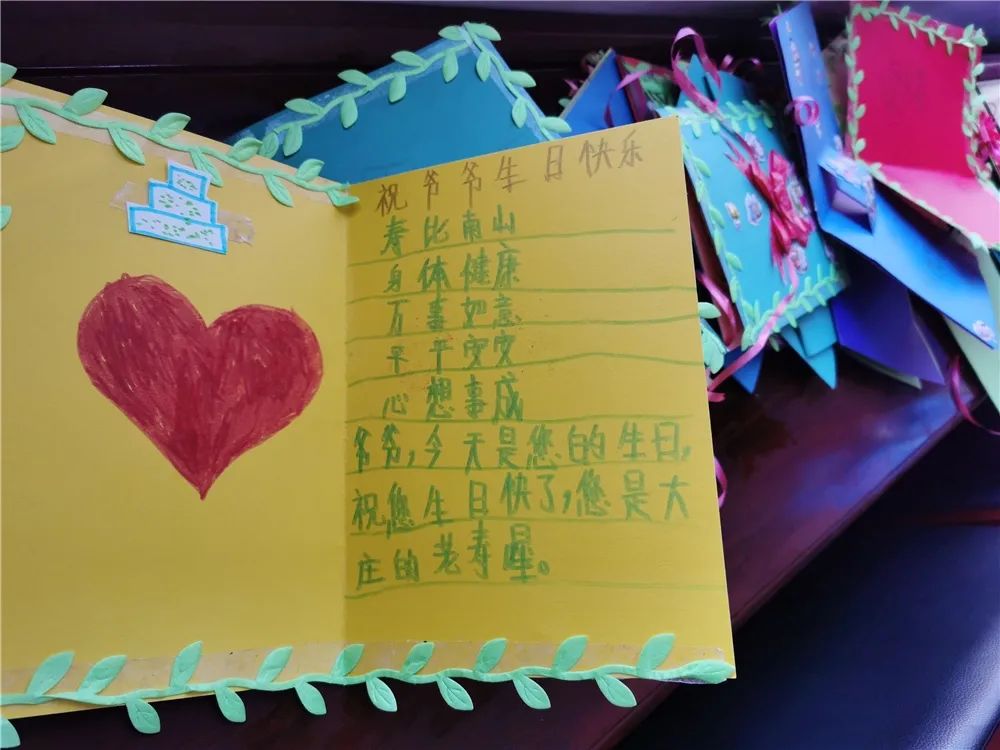 祝爷爷生日快乐
寿比南山
身体健康
万事如意
平平安安
心想事成
爷爷,今天是您的生日,
祝您生日快了,您是大
庄的老寿星。